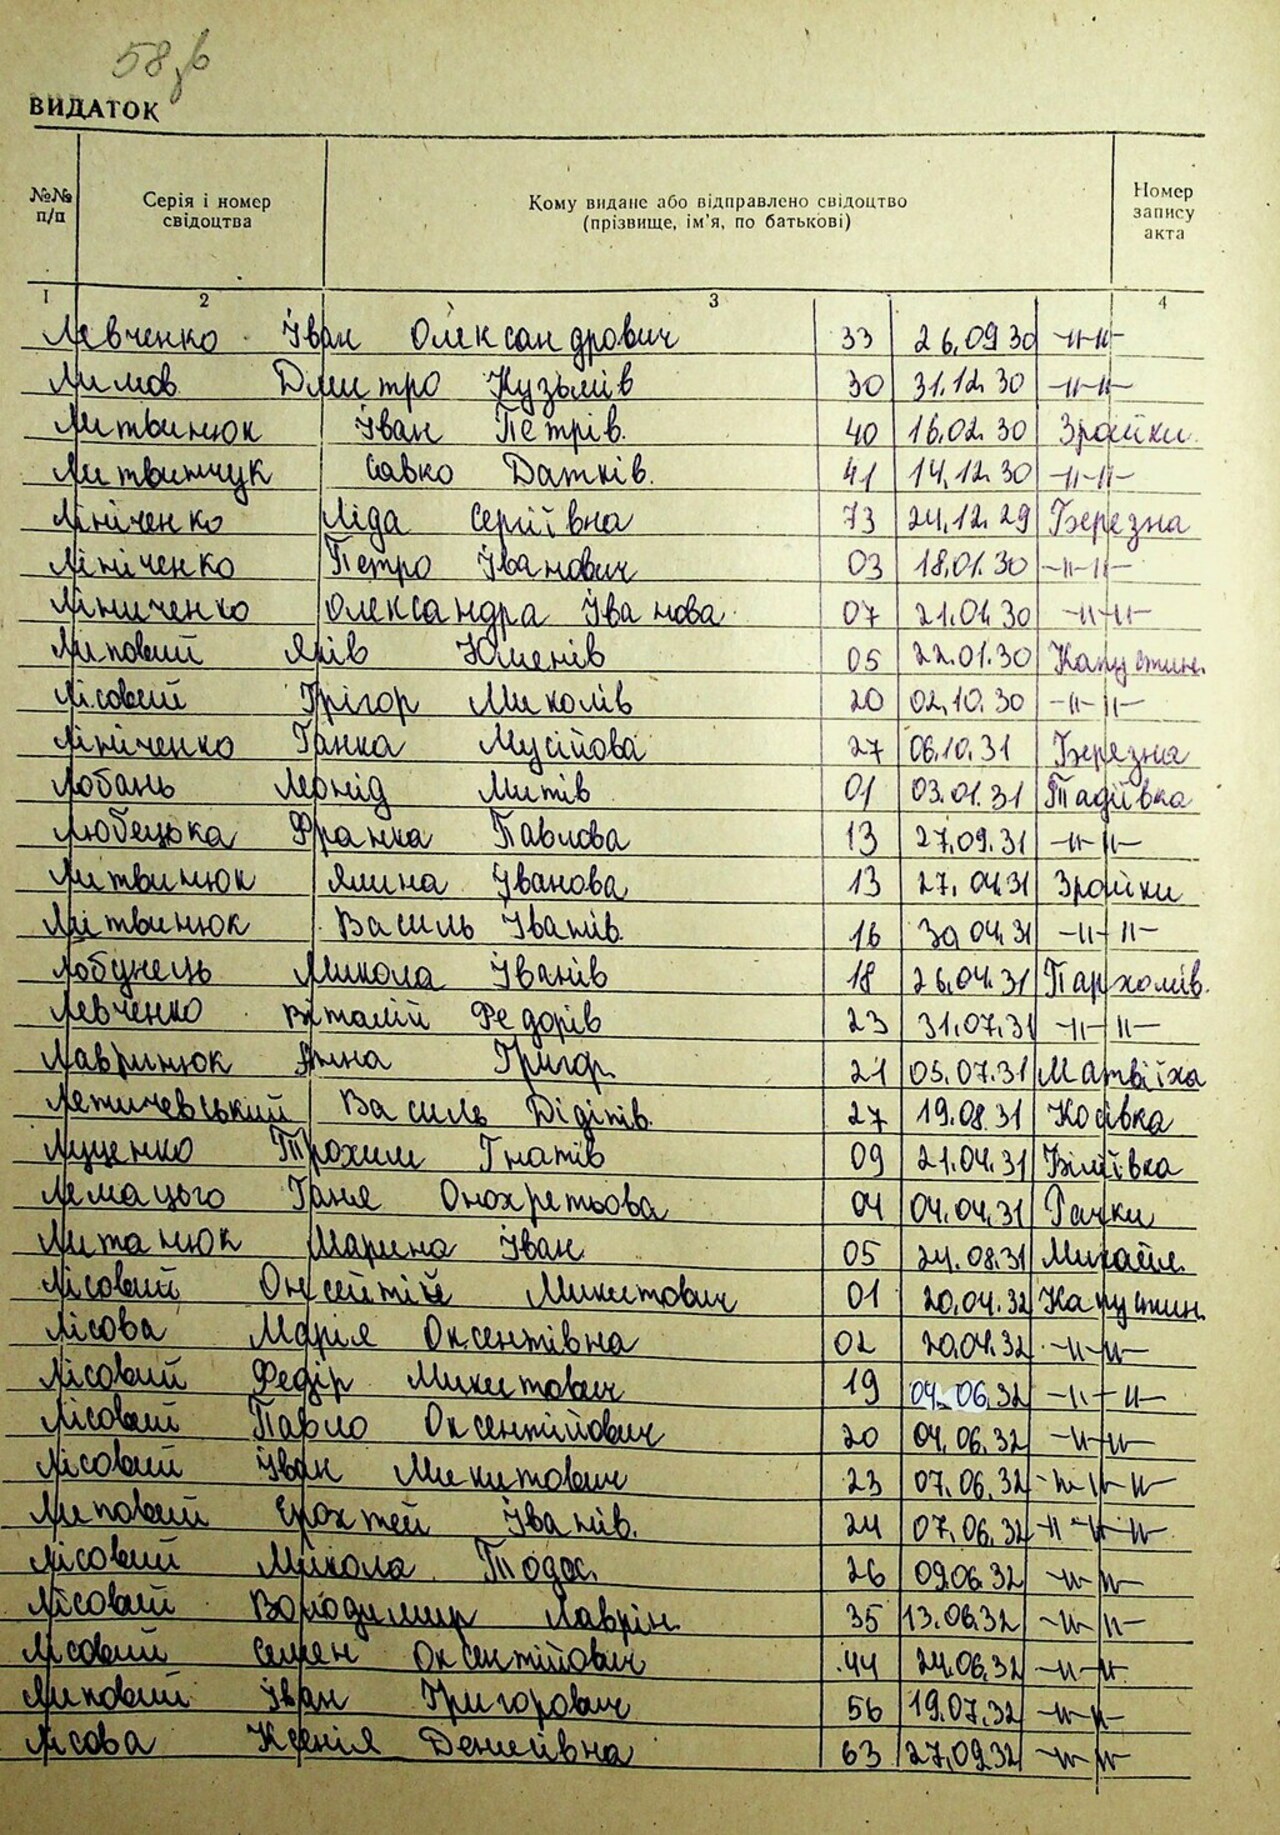 58зв
ВИДАТОК
№№ п/п
Серія і номер свідоцтва
Кому видане або відправлено свідоцтво (прізвище, ім'я, по батькові)
Номер запису акта
1 2 3 4
Левченко Іван Олександрович 33 26.09 30 -//-//-
Лимов Дмитро Кузьмів 30 31.12.30 -//-//-
Литвинюк Іван Петрів. 40 16.02.30 Зройки
Литвинчук Савко Датків. 41 14.12.30 -//-//-
Лініченко Ліда Сергіївна 73 24.12.29 Березна
Лініченко Петро Іванович 03 18.01.30 -//-//-
Лінниченко Олександра Іванова 07 21.04.30 -//-//-
Липовий Яків Юменів 05 22.01.30 Капустин.
Лісовий Грігор Миколів 20 02.10.30 -//-//-
Лініченко Ганка Мусійова 27 06.10.31 Березна
Лобань Леонід Митів 01 03.01.31 Тадіївка
Любецька Франка Павлова 13 27.09.31 -//-//-
Литвинюк Ялина Іванова 13 27.04.31 Зройки
Літвинюк Василь Іванів. 16 30 04.31 -//-//-
Лобунець Микола Іванів 18 26.04.31 Пархомів.
Левченко Віталій Федорів 23 31.07.31 -//-//-
Лавринюк Анна Григор. 21 05.07.31 Матвіїха
Летичевський Василь Дідітів. 27 19.08.31 Косівка
Луценко Трохим Гнатів 09 21.04.31 Біліївка
Лемацьго Ганя Онохретьова 04 04.04.31 Рачки
Литанюк Марина Іван 05 24.08.31 Михайл.
Лісовий Микитович 01 20.04.32 Капустин.
Лісова Марія Оксентівна 02 20.04.32 -//-//-
Лісовий Федір Микитович 19 04.06.32 -//-//-
Лісовий Павло Оксентійович 20 04.06.32 -//-//-
Лісовий Іван Микитович 23 07.06.32 -//-//-//-
Липовий Ерохтей Іванів. 24 07.06.32 -//-//-//-
Лісовий Микола Тодос. 26 09.06.32 -//-//-
Лісовий Володимир Лаврін. 35 13.06.32 -//-//-
Лісовий Семен Оксентійович 44 24.06.32 -//-//-
Липовий Іван Григорович 56 19.07.32 -//-//-
Лісова Ксенія Денисівна 63 27.09.32 -//-//-